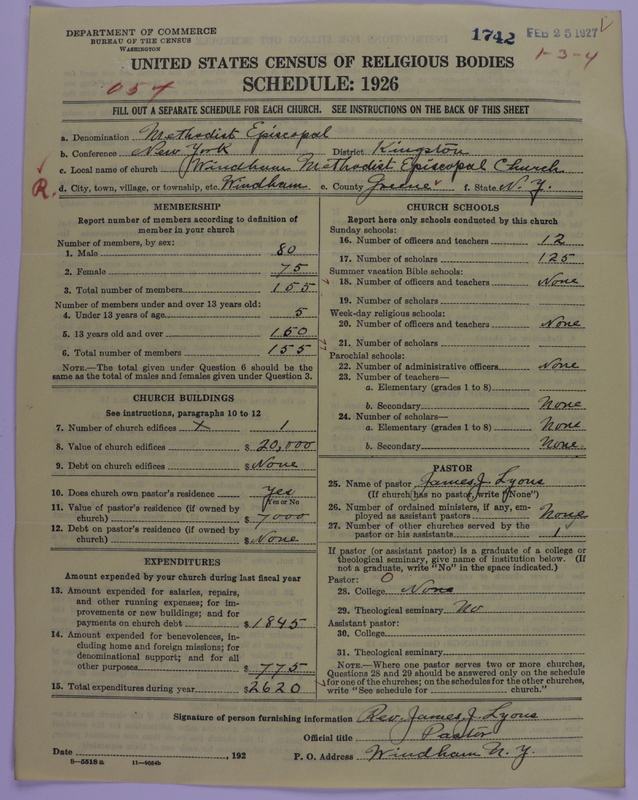 DEPARTMENT OF COMMERCE
BUREAU OF THE CENSUS
WASHINGTON
1742 FEB 25 1927
1-3-4
UNITED STATES CENSUS OF RELIGIOUS BODIES
057
SCHEDULE: 1926
FILL OUT A SEPARATE SCHEDULE FOR EACH CHURCH. SEE INSTRUCTIONS ON THE BACK OF THIS SHEET
a. Denomination Methodist Episcopal
b. Conference New York District Kingston
c. Local name of church Windham Methodist Episcopal Church
R. d. City, town, village, or township, etc. Windham e. County Greene f. State N. Y.
MEMBERSHIP
Report number of members according to definition of
member in your church
Number of members, by sex:
1. Male 80
2. Female 75
3. Total number of members 155
Number of members under and over 13 years old:
4. Under 13 years of age 5
5. 13 years old and over 150
6. Total number of members 155
NOTE.—The total given under Question 6 should be the
same as the total of males and females given under Question 3.
CHURCH BUILDINGS
See instructions, paragraphs 10 to 12
7. Number of church edifices x 1
8. Value of church edifices $ 20,000
9. Debt on church edifices $ None
10. Does church own pastor's residence Yes
(Yes or No
11. Value of pastor's residence (if owned by
church) $ 7000
12. Debt on pastor's residence (if owned by
church) $ None
EXPENDITURES
Amount expended by your church during last fiscal year
13. Amount expended for salaries, repairs,
and other running expenses; for im-
provements or new buildings; and for
payments on church debt $ 1845
14. Amount expended for benevolences, in-
cluding home and foreign missions; for
denominational support; and for all
other purposes $ 775
15. Total expenditures during year $ 2620
CHURCH SCHOOLS
Report here only schools conducted by this church
Sunday schools:
16. Number of officers and teachers 12
17. Number of scholars 125
Summer vacation Bible schools:
18. Number of officers and teachers None
19. Number of scholars
Week-day religious schools:
20. Number of officers and teachers None
21. Number of scholars
Parochial schools:
22. Number of administrative officers None
23. Number of teachers—
a. Elementary (grades 1 to 8)
b. Secondary None
24. Number of scholars—
a. Elementary (grades 1 to 8) None
b. Secondary None
PASTOR
25. Name of pastor James J. Lyons
(If church has no pastor, write "None")
26. Number of ordained ministers, if any, em-
ployed as assistant pastors None
27. Number of other churches served by the
pastor or his assistants 1
If pastor (or assistant pastor) is a graduate of a college or
theological seminary, give name of institution below. (If
not a graduate, write "No" in the space indicated.)
Pastor: O
28. College None
29. Theological seminary No
Assistant pastor:
30. College
31. Theological seminary
NOTE.—Where one pastor serves two or more churches,
Questions 28 and 29 should be answered only on the schedule
for one of the churches; on the schedules for the other churches,
write "See schedule for church."
Signature of person furnishing information Rev. James J. Lyons
Official title Pastor
Date , 192 P. O. Address Windham N. Y.
8—5518 a 11—9064b